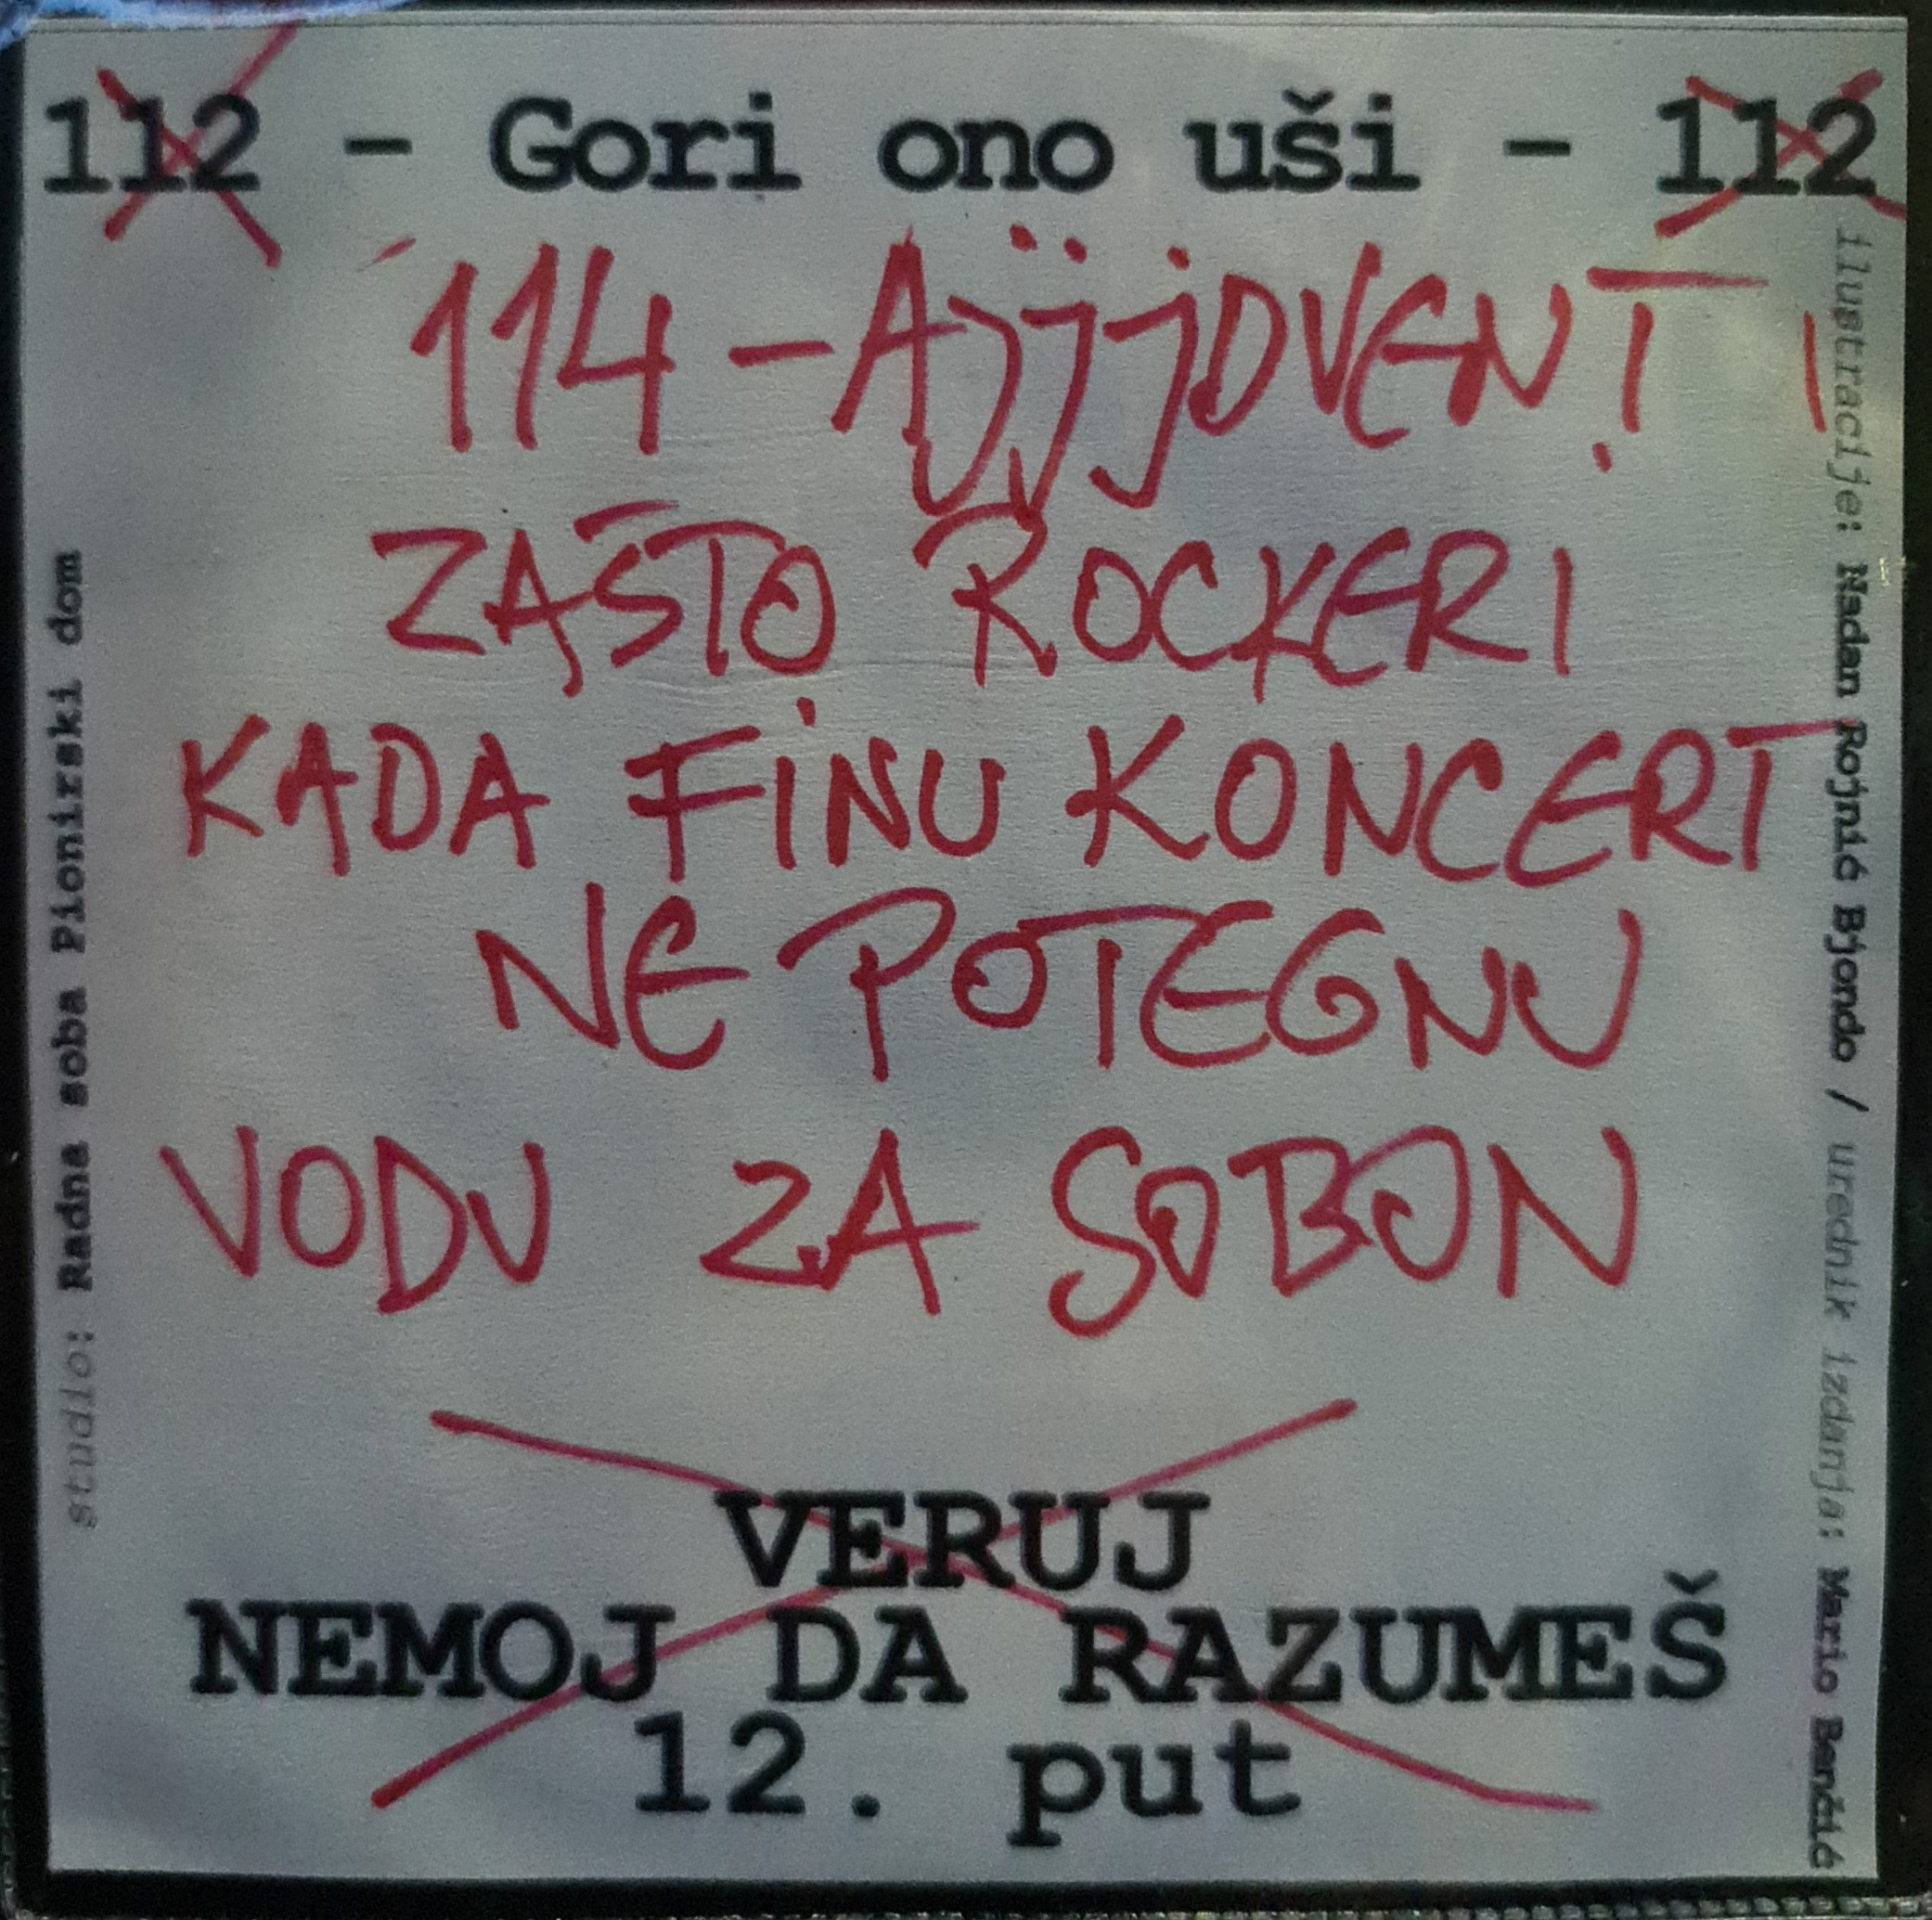 112 - Gori ono uši - 112
114 - AjjjDVENT!
ZAŠTO ROCKERI
KADA FINU KONCERT
NE POTEGNU
VODU ZA SOBON
VERUJ
NEMOJ DA RAZUMEŠ
12. put
studio: Radna soba Pionirski dom
ilustracije: Nadan Rojnić Bjondo / urednik izdanja: Mario Benčić